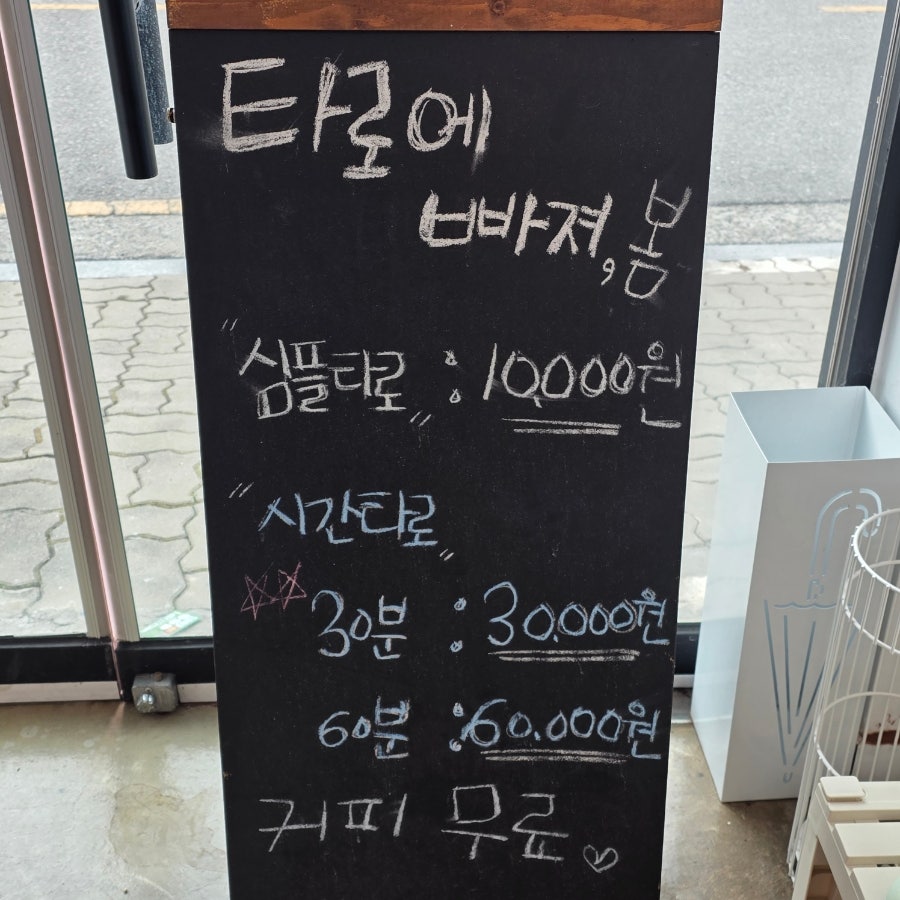 타로에
빠져, 봄
"심플타로" : 10,000원
"시간타로"
30분 : 30.000원
60분 : 60.000원
커피 무료